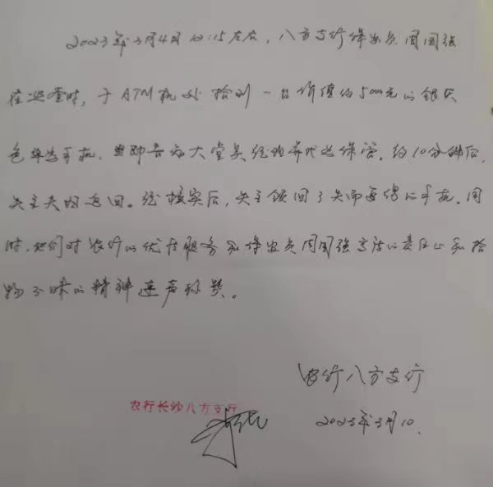 2023年3月4日10:15左右，八方支行保安员周国强
在巡查时，于ATM机处捡到一台价值约5000元的银灰
色华为手机，当即告知大堂吴经理并代为保管。约10分钟后，
失主夫妇返回。经核实后，失主领回了失而复得的手机。同
时，她们对农行的优质服务和保安员周国强高洁的责任心和拾
物不昧的精神连声称赞。
农行八方支行
农行长沙八方支行
2023年3月10.